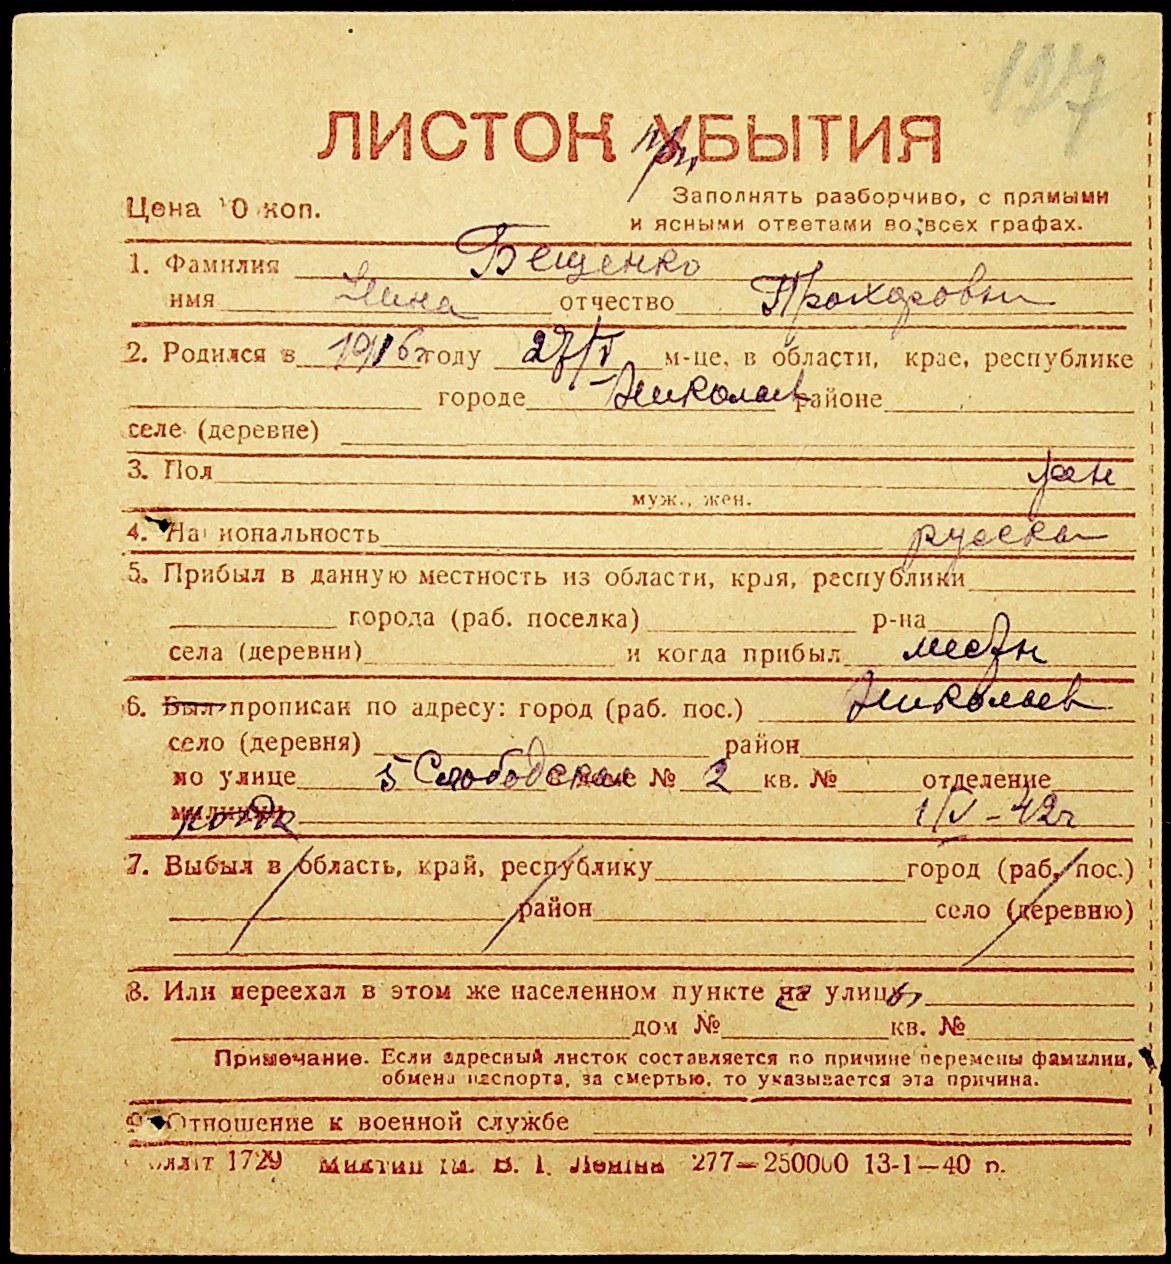 127
ЛИСТОК УБЫТИЯ
при
Цена 10 коп.
Заполнять разборчиво, с прямыми
и ясными ответами во всех графах.
1. Фамилия Бещенко
имя Нина отчество Прохоровна
2. Родился в 1916 году 27/I м-це, в области, крае, республике
городе Николаев районе
селе (деревне)
3. Пол жен
муж., жен.
4. Национальность русская
5. Прибыл в данную местность из области, края, республики
города (раб. поселка) р-на
села (деревни) и когда прибыл местн
6. Был прописан по адресу: город (раб. пос.) Николаев
село (деревня) район
по улице 5 Слободская доме № 2 кв. № отделение
милиции 1/V-42г
7. Выбыл в область, край, республику город (раб. пос.)
район село (деревню)
8. Или переехал в этом же населенном пункте на улицу
дом № кв. №
Примечание. Если адресный листок составляется по причине перемены фамилии,
обмена паспорта, за смертью, то указывается эта причина.
9. Отношение к военной службе
1729 ім. В. І. Леніна 277—250000 13-1—40 р.